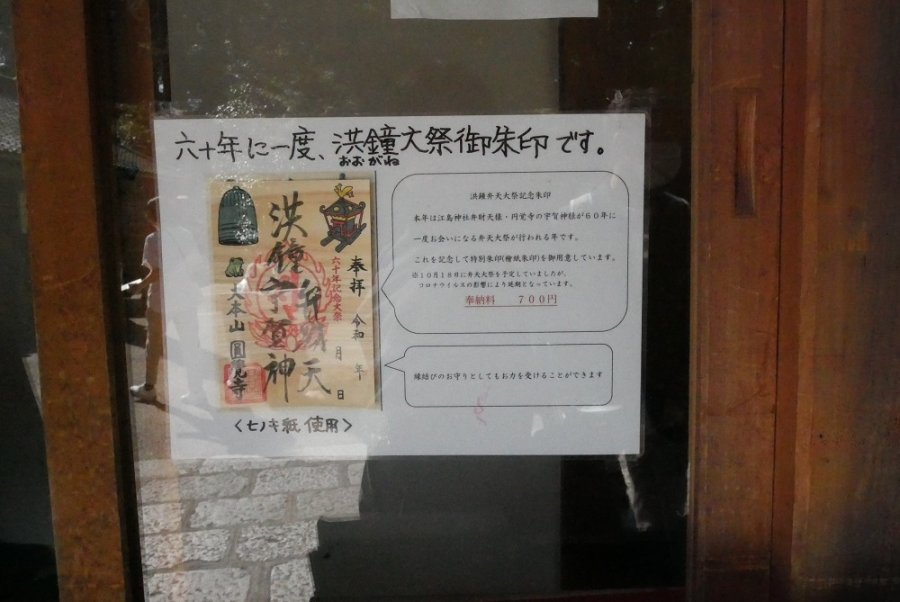 六十年に一度、洪鐘大祭御朱印です。
おおがね
奉拝 令和 年 月 日
六十年記念大祭
弁財天
洪鐘宇賀神
大本山 圓覺寺
〈ヒノキ紙使用〉
洪鐘弁天大祭記念朱印
本年は江島神社弁財天様・円覚寺の宇賀神様が６０年に
一度お会いになる弁天大祭が行われる年です。
これを記念して特別朱印(檜紙朱印)を御用意しています。
※１０月１８日に弁天大祭を予定していましたが、
コロナウイルスの影響により延期となっています。
奉納料 ７００円
縁結びのお守りとしてもお力を受けることができます